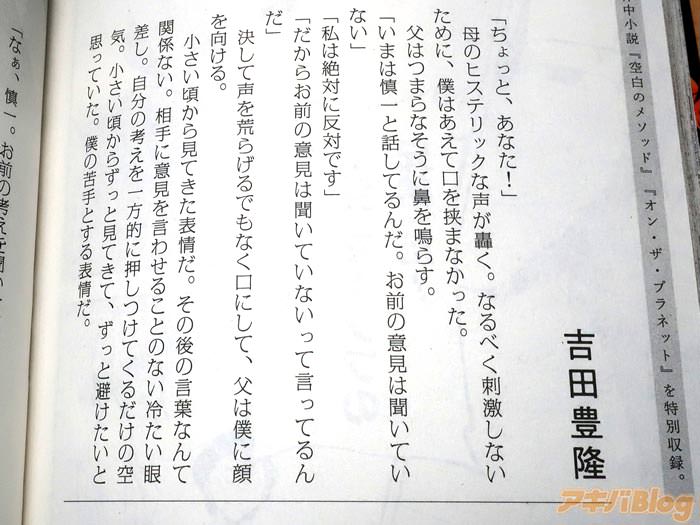 作中小説『空白のメソッド』『オン・ザ・プラネット』を特別収録。
吉田豊隆
「ちょっと、あなた！」
母のヒステリックな声が轟く。なるべく刺激しない
ために、僕はあえて口を挟まなかった。
父はつまらなそうに鼻を鳴らす。
「いまは慎一と話してるんだ。お前の意見は聞いてい
ない」
「私は絶対に反対です」
「だからお前の意見は聞いていないって言ってるん
だ」
決して声を荒らげるでもなく口にして、父は僕に顔
を向ける。
小さい頃から見てきた表情だ。その後の言葉なんて
関係ない。相手に意見を言わせることのない冷たい眼
差し。自分の考えを一方的に押しつけてくるだけの空
気。小さい頃からずっと見てきて、ずっと避けたいと
思っていた。僕の苦手とする表情だ。
「なぁ、慎一。お前の考えを聞い
アキバBlog